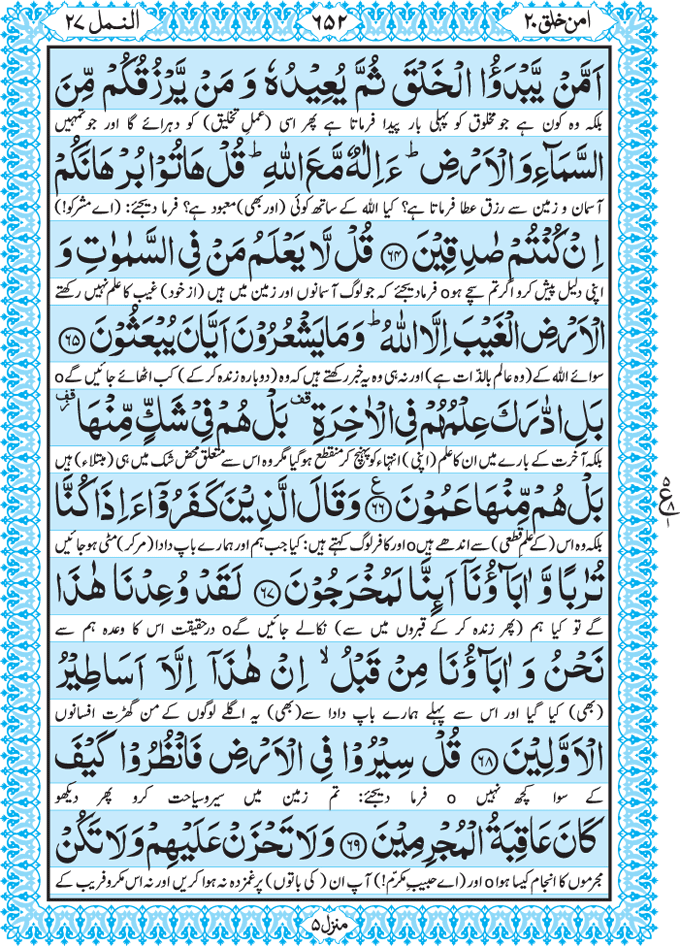 امن خلق ۲۰ ۶۵۲ النمل ۲۷
اَمَّنْ یَّبْدَؤُا الْخَلْقَ ثُمَّ یُعِیْدُهٗ وَ مَنْ یَّرْزُقُكُمْ مِّنَ
بلکہ وہ کون ہے جو مخلوق کو پہلی بار پیدا فرماتا ہے پھر اسی (عملِ تخلیق) کو دہرائے گا اور جو تمہیں
السَّمَآءِ وَ الْاَرْضِ ؕ ءَاِلٰهٌ مَّعَ اللّٰهِ ؕ قُلْ هَاتُوْا بُرْهَانَكُمْ
آسمان و زمین سے رزق عطا فرماتا ہے؟ کیا اللہ کے ساتھ کوئی (اور بھی) معبود ہے؟ فرما دیجئے: (اے مشرکو!)
اِنْ كُنْتُمْ صٰدِقِیْنَ ۶۴ قُلْ لَّا یَعْلَمُ مَنْ فِی السَّمٰوٰتِ وَ
اپنی دلیل پیش کرو اگر تم سچے ہوo فرما دیجئے کہ جو لوگ آسمانوں اور زمین میں ہیں (از خود) غیب کا علم نہیں رکھتے
الْاَرْضِ الْغَیْبَ اِلَّا اللّٰهُ ؕ وَ مَا یَشْعُرُوْنَ اَیَّانَ یُبْعَثُوْنَ ۶۵
سوائے اللہ کے (وہ عالم بالذّات ہے) اور نہ ہی وہ یہ خبر رکھتے ہیں کہ وہ (دوبارہ زندہ کر کے) کب اٹھائے جائیں گےo
بَلِ ادّٰرَكَ عِلْمُهُمْ فِی الْاٰخِرَةِ قف بَلْ هُمْ فِیْ شَكٍّ مِّنْهَا
بلکہ آخرت کے بارے میں ان کا علم (اپنی) انتہاء کو پہنچ کر منقطع ہوگیا مگر وہ اس سے متعلق محض شک میں ہی (مبتلاء) ہیں
بَلْ هُمْ مِّنْهَا عَمُوْنَ ۶۶ ع وَ قَالَ الَّذِیْنَ كَفَرُوْۤا ءَاِذَا كُنَّا
بلکہ وہ اس (کے علمِ قطعی) سے اندھے ہیںo اور کافر لوگ کہتے ہیں: کیا جب ہم اور ہمارے باپ دادا (مر کر) مٹی ہو جائیں
تُرٰبًا وَّ اٰبَآؤُنَاۤ اَىِٕنَّا لَمُخْرَجُوْنَ ۶۷ لَقَدْ وُعِدْنَا هٰذَا
گے تو کیا ہم (پھر زندہ کر کے قبروں میں سے) نکالے جائیں گےo درحقیقت اس کا وعدہ ہم سے
نَحْنُ وَ اٰبَآؤُنَا مِنْ قَبْلُ ۙ اِنْ هٰذَاۤ اِلَّاۤ اَسَاطِیْرُ
(بھی) کیا گیا اور اس سے پہلے ہمارے باپ دادا سے (بھی) یہ اگلے لوگوں کے من گھڑت افسانوں
الْاَوَّلِیْنَ ۶۸ قُلْ سِیْرُوْا فِی الْاَرْضِ فَانْظُرُوْا كَیْفَ
کے سوا کچھ نہیں o فرما دیجئے: تم زمین میں سیر و سیاحت کرو پھر دیکھو
كَانَ عَاقِبَةُ الْمُجْرِمِیْنَ ۶۹ وَ لَا تَحْزَنْ عَلَیْهِمْ وَ لَا تَكُنْ
مجرموں کا انجام کیسا ہواo اور (اے حبیبِ مکرّم!) آپ ان (کی باتوں) پر غمزدہ نہ ہوا کریں اور نہ اس مکر و فریب کے
منزل ۵